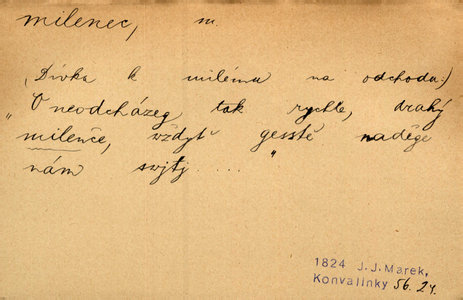 milenec, m.
(Dívka k milému na odchodu:)
„O neodcházeg tak rychle, drahý
milenče, vždyť gesstě naděge
nám svjtj . . . . "
1824 J.J.Marek,
Konvalinky 56. 24.